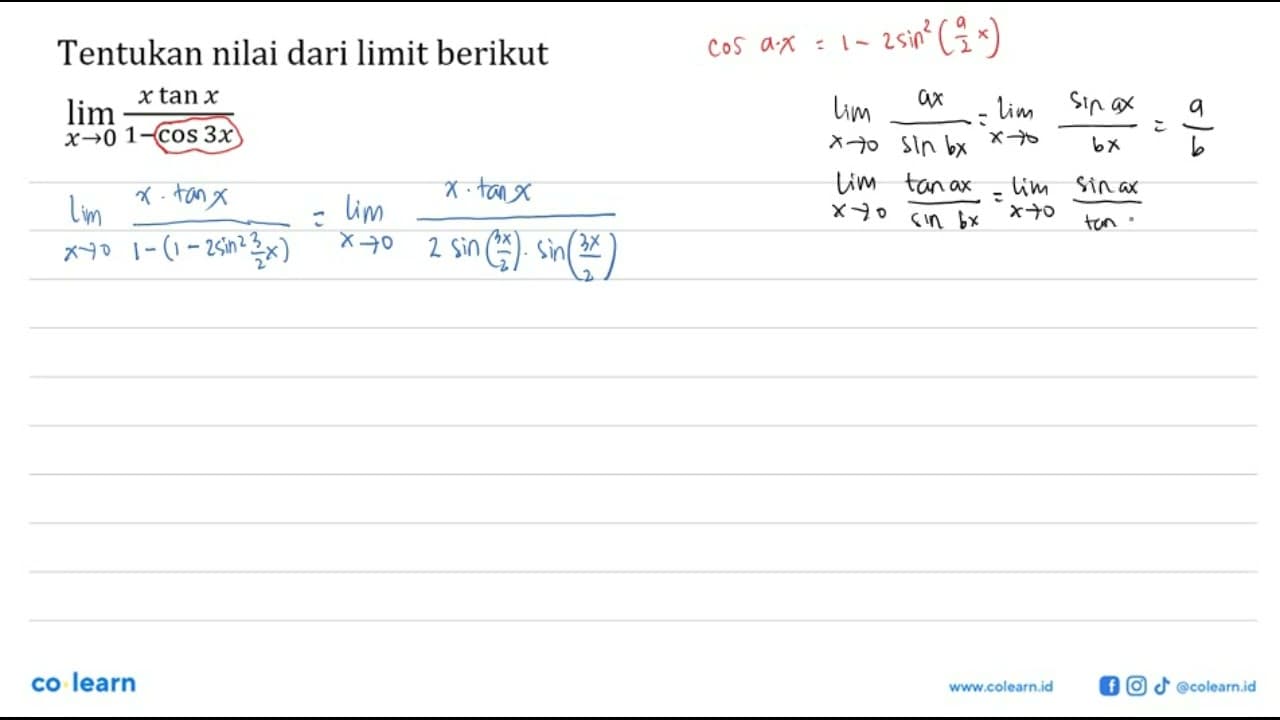 Tentukan nilai dari limit berikut
lim x→0 x tan x / 1−cos 3x
cos a·x = 1 − 2 sin² (a/2 x)
lim x→0 ax / sin bx = lim x→0 sin ax / bx = a / b
lim x→0 tan ax / sin bx = lim x→0 sin ax / tan
lim x→0 x · tan x / 1−(1−2sin² 3/2 x) = lim x→0 x · tan x / 2 sin(3x/2) · sin(3x/2)
co learn
www.colearn.id
@colearn.id